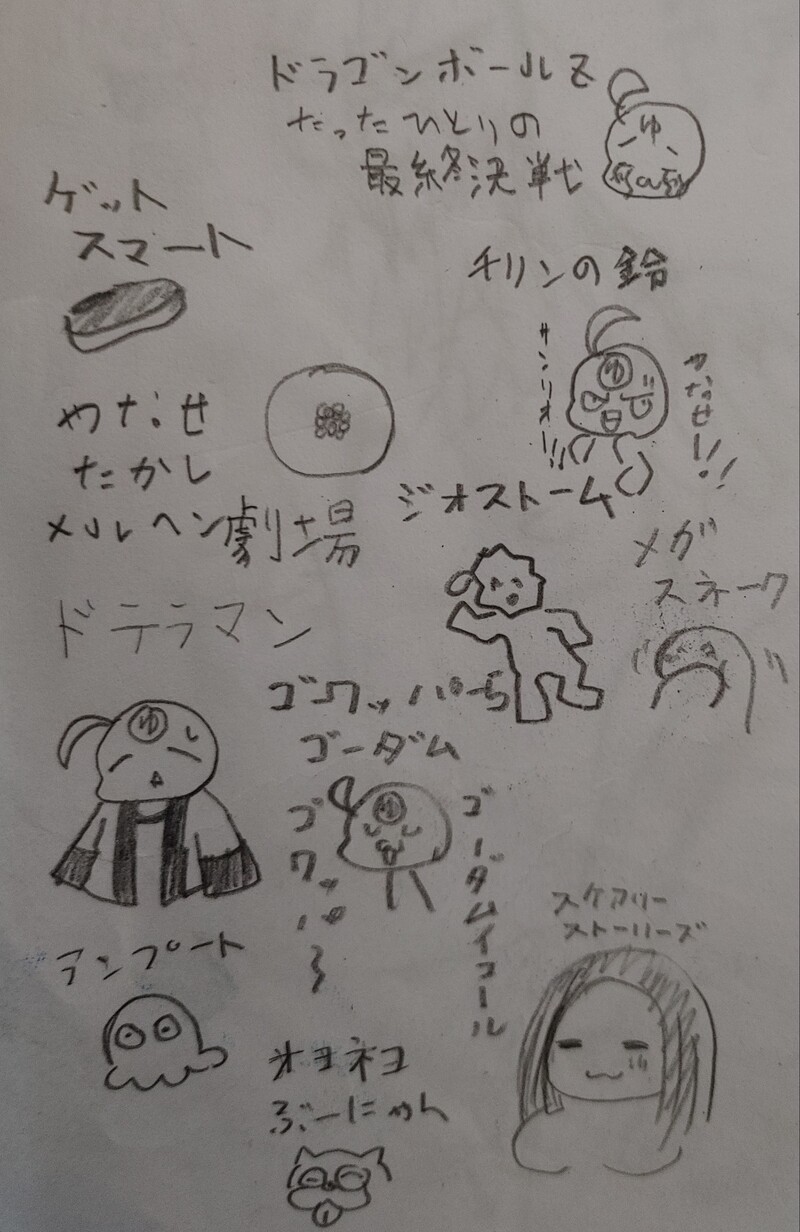 ドラゴンボールZ
たったひとりの
最終決戦
ゆ
ゲット
スマート
チリンの鈴
サンリオー!!
ゆ
やなせー!!
やなせ
たかし
メルヘン劇場
ジオストーム
メガ
スネーク
ドテラマン
ゆ
ゴワッパー5
ゴーダム
ゴワッパー
ゆ
ゴーダムイコール
テンプート
スケアリー
ストーリーズ
オヨネコ
ぶーにゃん